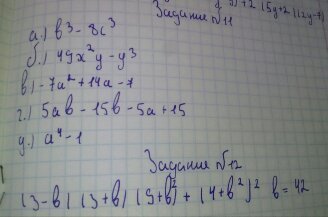 +2(5y+2)(2y-7)
Задание №11
а.) b³ - 8c³
б.) 49x²y - y³
в) -7a² + 14a - 7
г.) 5ab - 15b - 5a + 15
д.) a⁴ - 1
Задание №12
(3-b)(3+b)(9+b)² + (4+b²)² b = 42